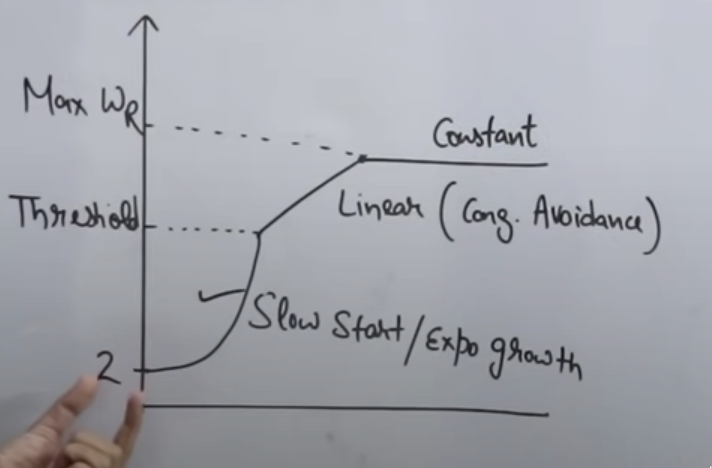 Max WR
Constant
Threshold
Linear (Cong. Avoidance)
Slow Start/Expo growth
2